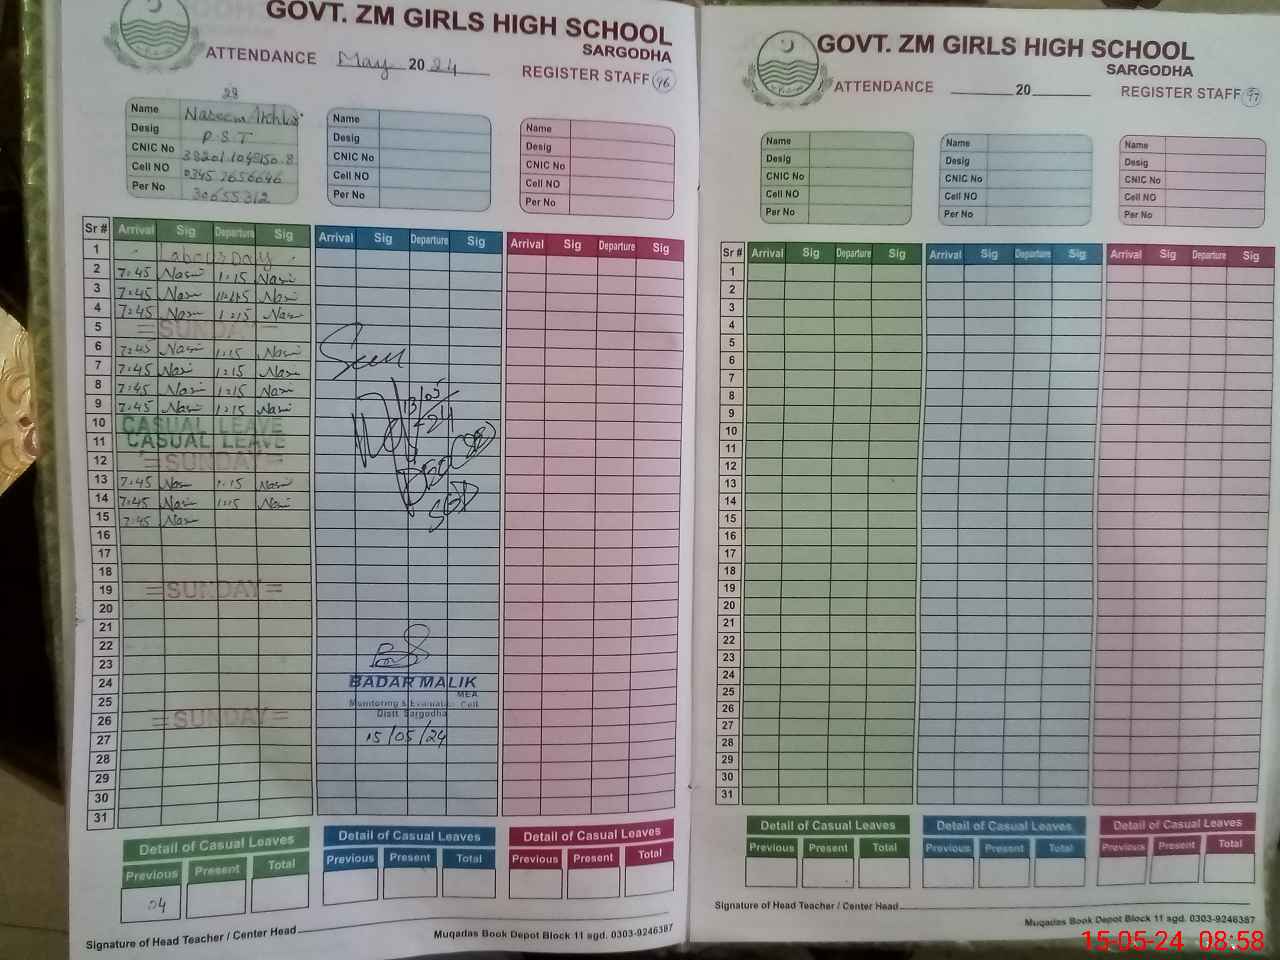 GOVT. ZM GIRLS HIGH SCHOOL
SARGODHA
ATTENDANCE May 2024 REGISTER STAFF 96
28
Name Naseem Akhtar
Desig P.S.T
CNIC No
Cell NO 0345 2656646
Per No 30655312
Name
Desig
CNIC No
Cell NO
Per No
Name
Desig
CNIC No
Cell NO
Per No
Sr # Arrival Sig Departure Sig Arrival Sig Departure Sig Arrival Sig Departure Sig
1 Labour Day
2 7:45 Nasi 1:15 Nasi
3 7:45 Nasi Nasi
4 7:45 Nasi 1:15 Nasi
5 =SUNDAY=
6 7:45 Nasi 1:15 Nasi
7 7:45 Nasi 1:15 Nasi
8 7:45 Nasi 1:15 Nasi
9 7:45 Nasi 1:15 Nasi
10 CASUAL LEAVE
11 CASUAL LEAVE
12 =SUNDAY=
13 7:45 Nasi 1:15 Nasi
14 7:45 Nasi 1:15 Nasi
15 7:45 Nasi
16
17
18
19 =SUNDAY=
20
21
22
23
24
25
26 =SUNDAY=
27
28
29
30
31
Seen
13/05
BADAR MALIK
MEA
Monitoring & Evaluation Cell
Distt. Sargodha
15/05/24
Detail of Casual Leaves Detail of Casual Leaves Detail of Casual Leaves
Previous Present Total Previous Present Total Previous Present Total
04
Signature of Head Teacher / Center Head
Muqadas Book Depot Block 11 sgd. 0303-9246387
GOVT. ZM GIRLS HIGH SCHOOL
SARGODHA
ATTENDANCE 20 REGISTER STAFF 97
Name
Desig
CNIC No
Cell NO
Per No
Name
Desig
CNIC No
Cell NO
Per No
Name
Desig
CNIC No
Cell NO
Per No
Sr # Arrival Sig Departure Sig Arrival Sig Departure Sig Arrival Sig Departure Sig
1
2
3
4
5
6
7
8
9
10
11
12
13
14
15
16
17
18
19
20
21
22
23
24
25
26
27
28
29
30
31
Detail of Casual Leaves Detail of Casual Leaves Detail of Casual Leaves
Previous Present Total Previous Present Total Previous Present Total
Signature of Head Teacher / Center Head
Muqadas Book Depot Block 11 sgd. 0303-9246387
15-05-24 08:58